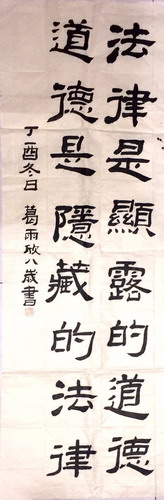 法律是顯露的道德
道德是隱藏的法律
丁酉冬日 葛雨欣八歲書